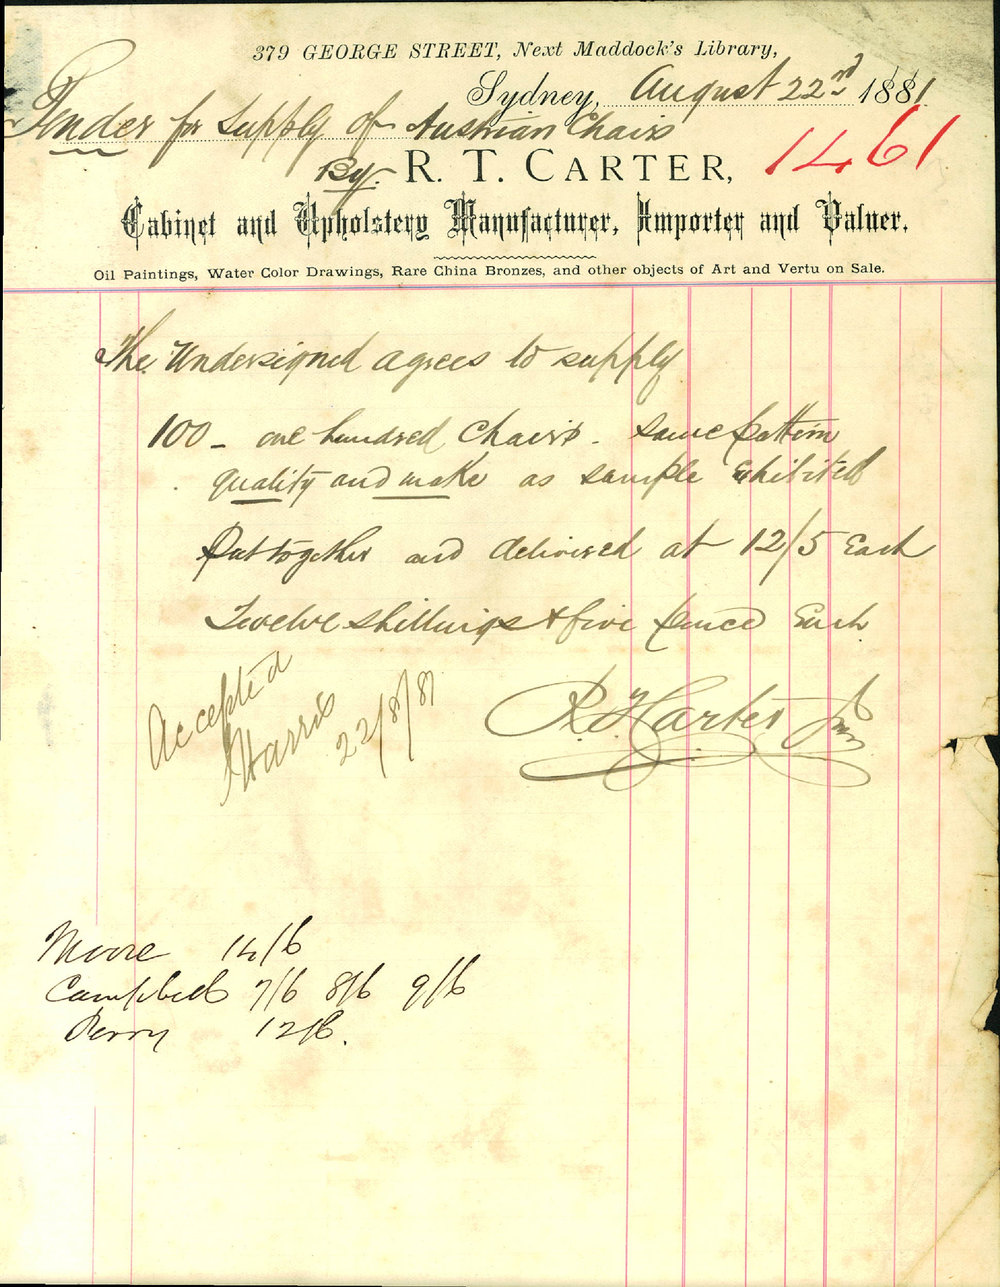 379 GEORGE STREET, Next Maddock's Library,
Sydney, August 22nd 1881
Tender for supply of Austrian Chairs
By R. T. CARTER,
1461
Cabinet and Upholstery Manufacturer, Importer and Valuer.
Oil Paintings, Water Color Drawings, Rare China Bronzes, and other objects of Art and Vertu on Sale.
The Undersigned agrees to supply
100 - one hundred Chairs. same pattern
quality and make as sample Exhibited
Put together and delivered at 12/5 Each
Twelve shillings & five pence Each
R. T. Carter Jun
Accepted
Harris
22/8/81
Moore 14/6
Campbell 7/6 8/6 9/6
Perry 12/6.